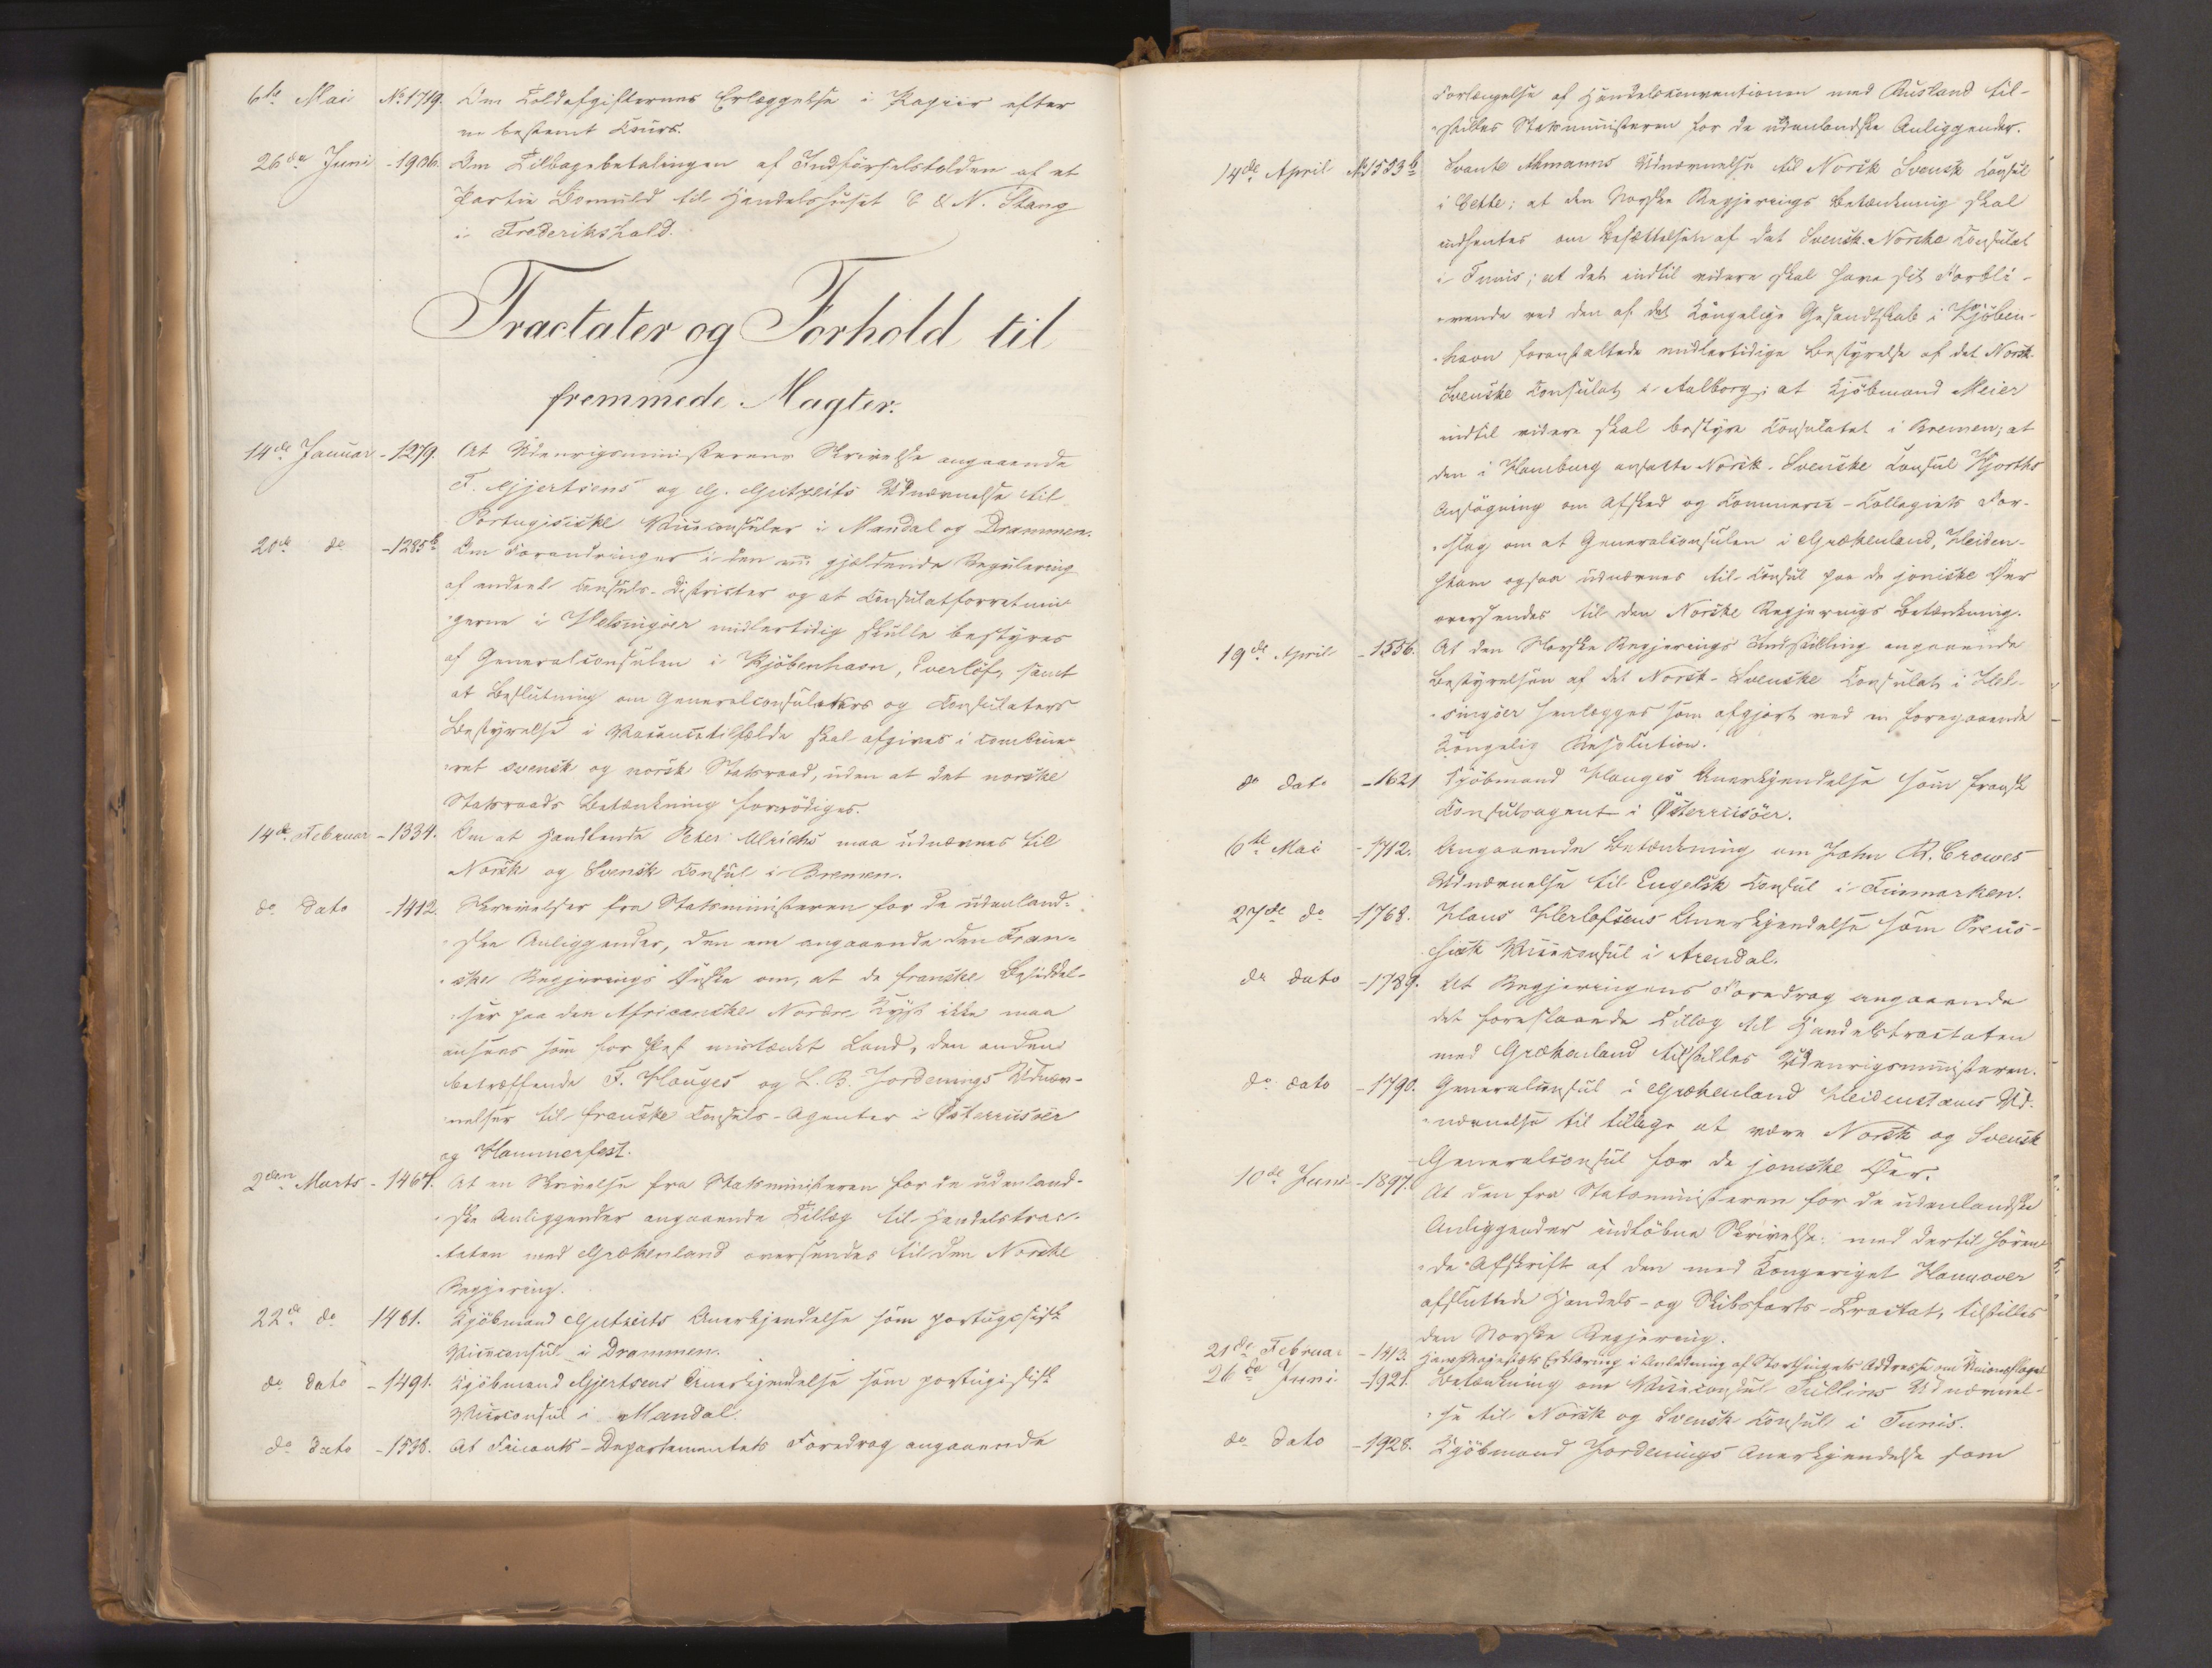 6te Mai No 1719. Om Toldafgifternes Erlæggelse i Papiir efter
en bestemt Cours.
26de Juni - 1906. Om Tilbagebetalingen af Indførselstolden af et
Partie Bomuld til Handelshuset C & N. Stang
i Frederikshald.
Tractater og Forhold til
fremmede Magter.
14de Januar - 1279. At Udenrigsministerens Skrivelse angaaende
F. Gjertsens og G. Gutzeits Udnævnelse til
Portugisiske Viceconsuler i Mandal og Drammen.
20de do - 1285b Om Forandringer i den nu gjældende Regulering
af endeel Consuls-Districter og at Consulatforretnin-
gerne i Helsingøer midlertidig skulle bestyres
af Generalconsulen i Kjöbenhavn, Everlöf, samt
at Beslutning om Generalconsulaters og Consulaters
Bestyrelse i Vacancetilfælde skal afgives i combine-
ret svensk og norsk Statsraad, uden at det norske
Statsraads Betænkning fornödiges.
14de Februar - 1334. Om at Handlende Peter Ulrichs maa udnævnes til
Norsk og Svensk Consul i Bremen.
do Dato - 1412. Skrivelser fra Statsministeren for de udenland-
ske Anliggender, den ene angaaende den Fran-
ske Regjerings Önske om, at de franske Besiddel-
ser paa den Africanske Nordre Kyst ikke maa
ansees som for Pest mistænkt Land, den anden
betræffende F. Hauges og L. B. Jordenings Udnæv-
nelser til franske Consuls-Agenter i Österriisöer
og Hammerfest.
2den Marts - 1464. At en Skrivelse fra Statsministeren for de udenland-
ske Anliggender angaaende Tillæg til Handelstrac-
taten med Grækenland oversendes til den Norske
Regjering.
22de do 1481. Kjöbmand Gutzeits Anerkjendelse som portugisisk
Viceconsul i Drammen.
do Dato - 1491. Kjöbmand Gjertsens Anerkjendelse som portugisisk
Viceconsul i Mandal.
do Dato - 1538. At Finants-Departementets Foredrag angaaende
Forlængelse af Handelsconventionen med Rusland til-
stilles Statsministeren for de udenlandske Anliggender.
14de April No 1553b Svante Ahmanns Udnævnelse til Norsk Svensk Consul
i Cette; at den Norske Regjerings Betænkning skal
indhentes om Besættelsen af det Svensk-Norske Consulat
i Tunis; at det indtil videre skal have sit Forbli-
vende ved den af det Kongelige Gesandtskab i Kjöben-
havn foranstaltede midlertidige Bestyrelse af det Norsk-
Svenske Consulat i Aalborg; at Kjöbmand Meier
indtil videre skal bestyre Consulatet i Bremen; at
den i Hamburg ansatte Norsk-Svenske Consul Hjorths
Ansögning om Afsked og Commerce-Collegiets For-
slag om at Generalconsulen i Grækenland, Heiden-
stam ogsaa udnævnes til Consul paa de joniske Øer
oversendes til den Norske Regjerings Betænkning.
19de April - 1556. At den Norske Regjerings Indstilling angaaende
Bestyrelsen af det Norsk-Svenske Consulat i Hel-
singöer henlægges som afgjort ved en foregaaende
Kongelig Resolution.
do Dato - 1621 Kjöbmand Hauges Anerkjendelse som fransk
Consulsagent i Österriisöer.
6te Mai - 1712. Angaaende Betænkning om John R. Crowes
Udnævnelse til Engelsk Consul i Finmarken.
27de do - 1768. Hans Herlofsens Anerkjendelse som Preus-
sisk Viceconsul i Arendal.
do Dato - 1789. At Regjeringens Foredrag angaaende
det foreslaaede Tillæg til Handelstractaten
med Grækenland tilstilles Udenrigsministeren.
do Dato - 1790. Generalconsul i Grækenland Heidenstams Ud-
nævnelse til tillige at være Norsk og Svensk
Generalconsul for de joniske Øer.
10de Juni - 1897. At den fra Statsministeren for de udenlandske
Anliggender indløbne Skrivelse med dertil hören-
de Afskrift af den med Kongeriget Hannover
afsluttede Handels- og Skibsfarts-Tractat, tilstilles
den Norske Regjering.
21de Februar - 1413. Hans Majestæts Erklæring i Anledning af Storthingets Addresse om Unionsflaget
26de Juni - 1921. Betænkning om Viceconsul Tullins Udnævnel-
se til Norsk og Svensk Consul i Tunis.
do Dato - 1928. Kjöbmand Jordenings Anerkjendelse som